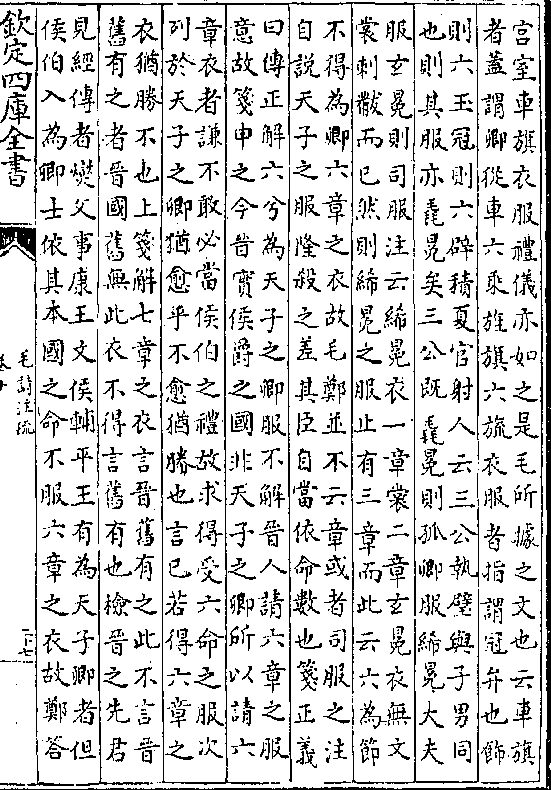 宫室車旗衣服禮儀亦如之是毛所據之文也云車旗
者蓋謂卿從車六乘旌旗六旒衣服者指謂冠弁也飾
則六玉冠則六辟積夏官射人云三公執璧與子男同
也則其服亦毳冕矣三公既毳冕則孤卿服絺冕大夫
服玄冕則司服注云絺冕衣一章裳二章玄冕衣無文
裳刺黻而已然則絺冕之服止有三章而此云六為節
不得為卿六章之衣故毛鄭並不云章或者司服之注
自説天子之服隆殺之差其臣自當依命數也箋正義
曰傳正解六兮為天子之卿服不解晉人請六章之服
意故箋申之今晉實侯爵之國非天子之卿所以請六
章衣者謙不敢必當侯伯之禮故求得受六命之服次
列於天子之卿猶愈乎不愈猶勝也言已若得六章之
衣猶勝不也上箋解七章之衣言晉舊有之此不言晉
舊有之者晉國舊無此衣不得言舊有也檢晉之先君
見經傳者爕父事康王文侯輔平王有為天子卿者但
侯伯入為卿士依其本國之命不服六章之衣故鄭答
欽定四庫全書
毛詩注疏
卷十